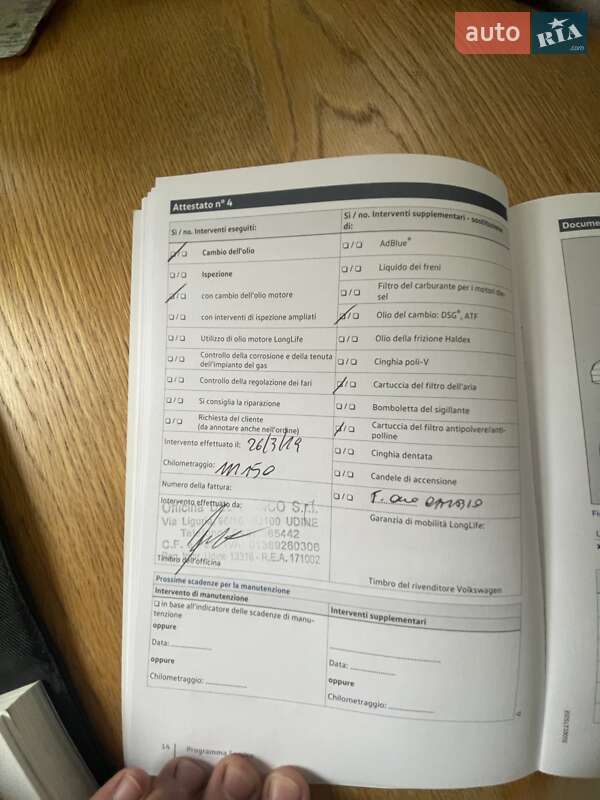 auto RIA .com
Attestato n° 4
Sì / no. Interventi eseguiti:
Sì / no. Interventi supplementari - sostituzione di:
❑/❑ Cambio dell'olio
❑/❑ AdBlue®
❑/❑ Ispezione
❑/❑ Liquido dei freni
❑/❑ con cambio dell'olio motore
❑/❑ Filtro del carburante per i motori diesel
❑/❑ con interventi di ispezione ampliati
❑/❑ Olio del cambio: DSG®, ATF
❑/❑ Utilizzo di olio motore LongLife
❑/❑ Olio della frizione Haldex
❑/❑ Controllo della corrosione e della tenuta
dell'impianto del gas
❑/❑ Cinghia poli-V
❑/❑ Controllo della regolazione dei fari
❑/❑ Cartuccia del filtro dell'aria
❑/❑ Si consiglia la riparazione
❑/❑ Bomboletta del sigillante
❑/❑ Richiesta del cliente
(da annotare anche nell'ordine)
❑/❑ Cartuccia del filtro antipolvere/anti-
polline
Intervento effettuato il: 26/3/19
❑/❑ Cinghia dentata
Chilometraggio: 111150
❑/❑ Candele di accensione
Numero della fattura:
❑/❑
Intervento effettuato da:
Garanzia di mobilità LongLife:
Officina S.r.l.
Via UDINE
65442
C.F. 01389260306
Udine R.E.A. 171002
Timbro dell'officina
Timbro del rivenditore Volkswagen
Prossime scadenze per la manutenzione
Intervento di manutenzione
Interventi supplementari
❑ in base all'indicatore delle scadenze di manu-
tenzione
oppure
Data:
Data:
oppure
oppure
Chilometraggio:
Chilometraggio:
14 Programma
Docume